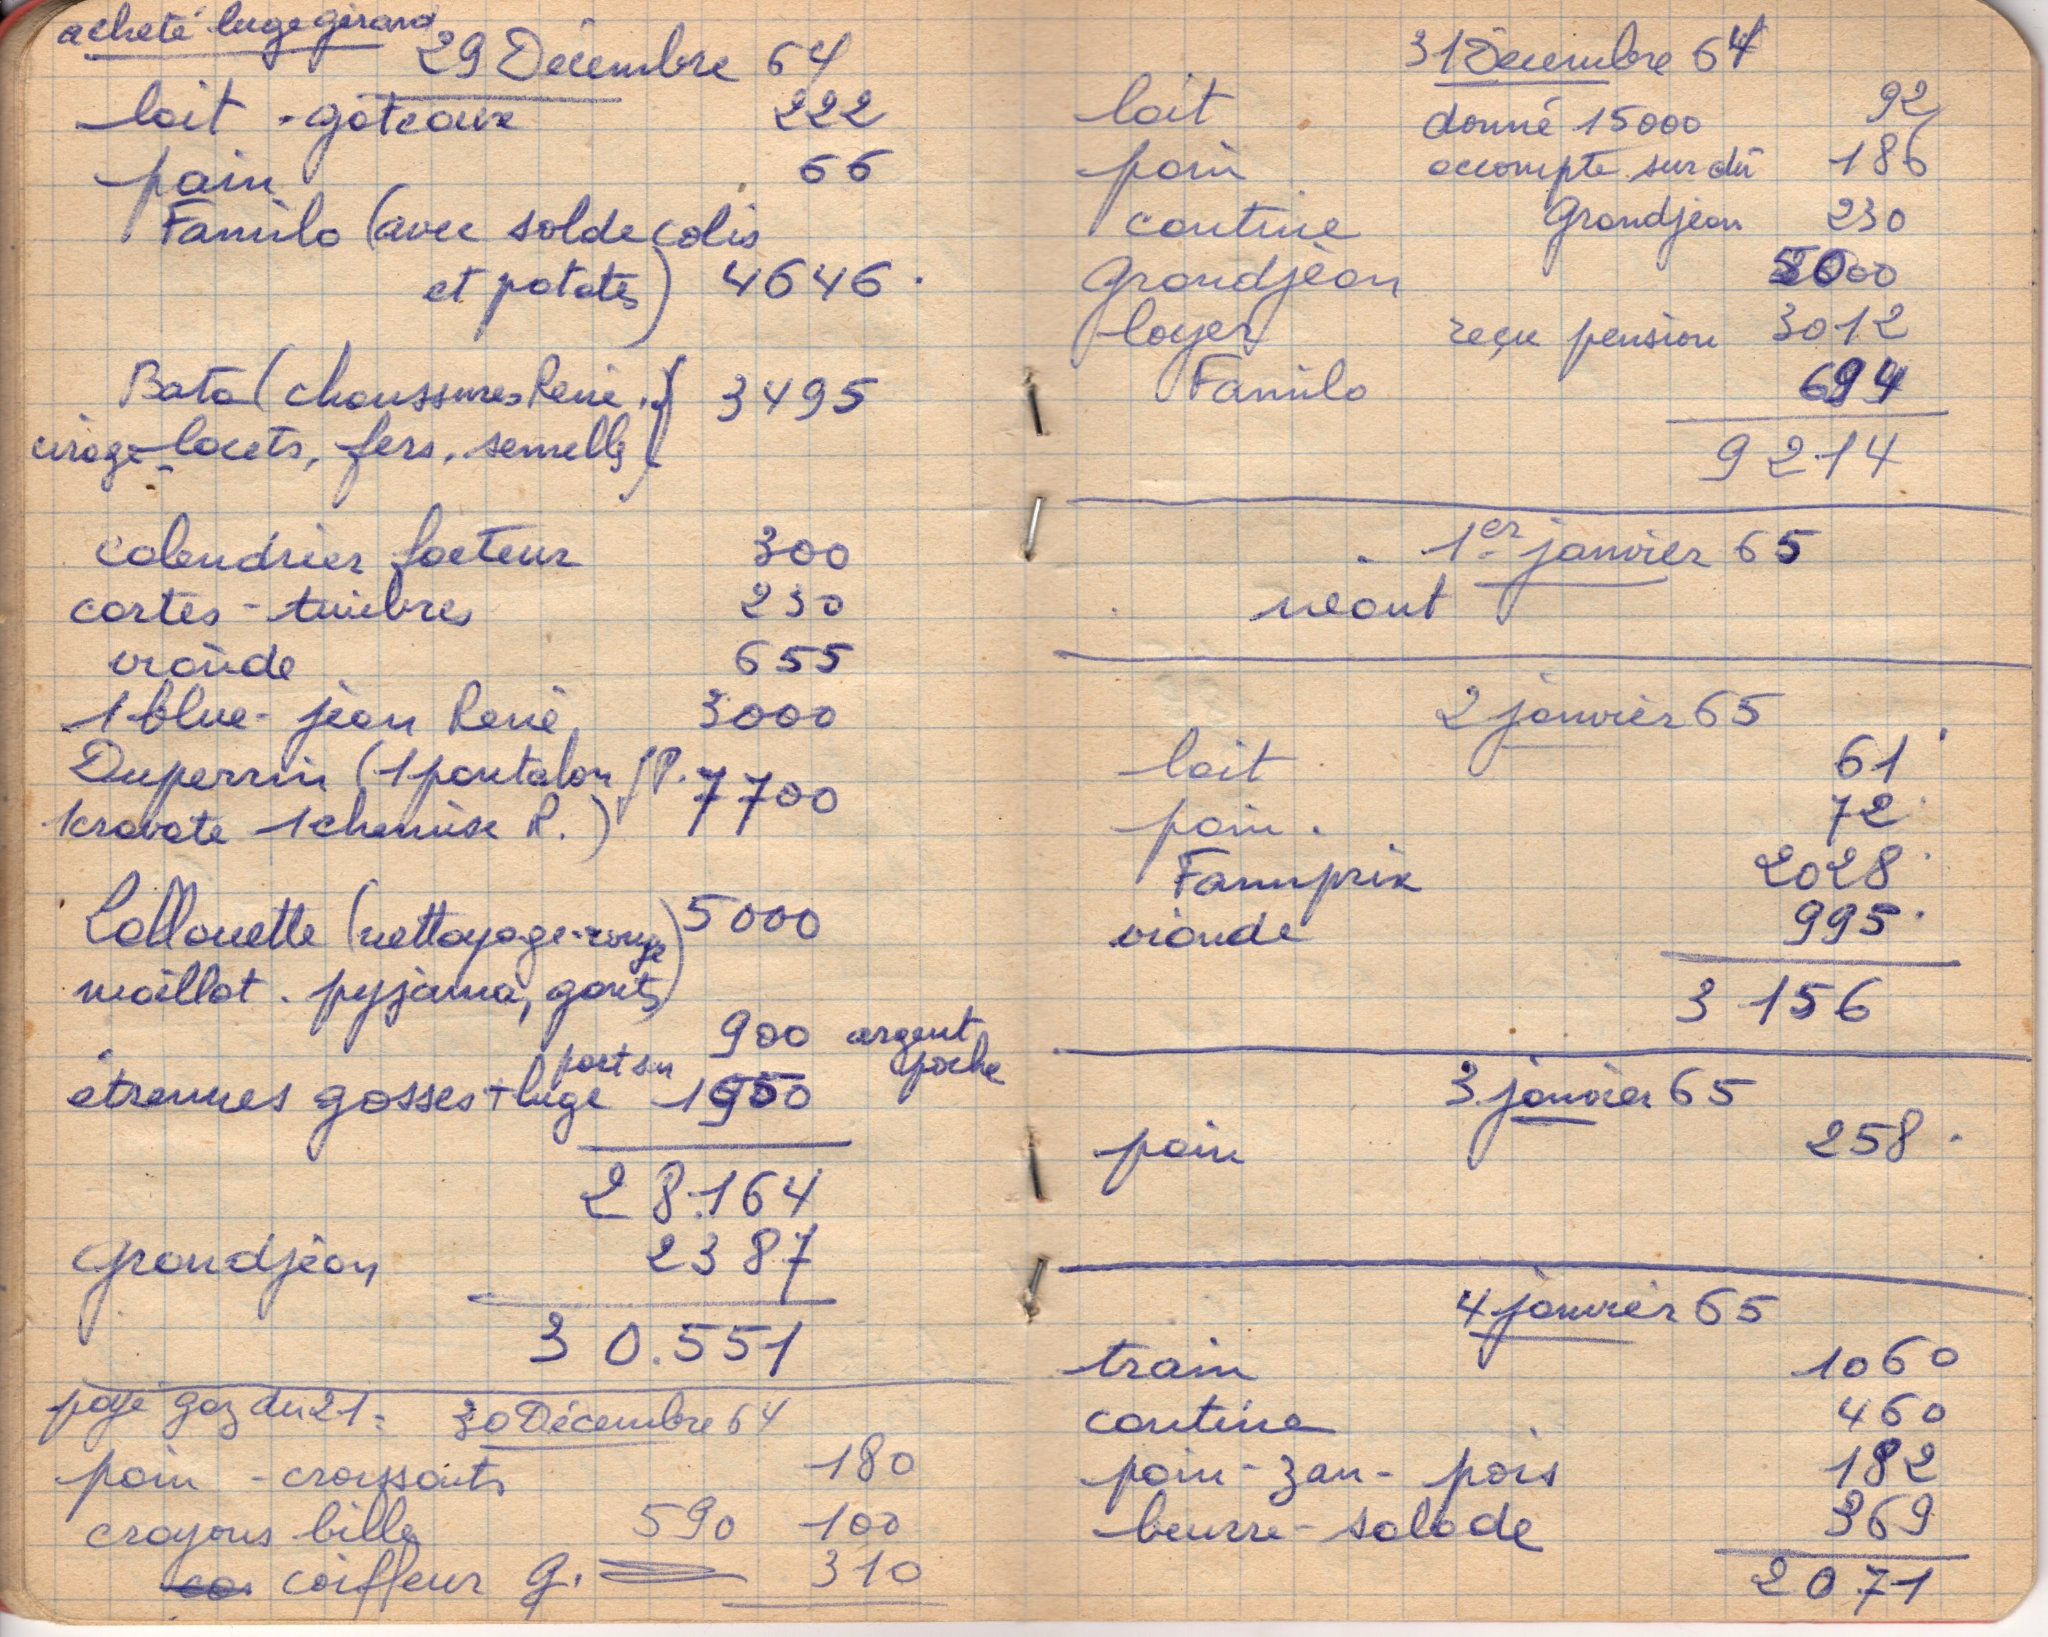 acheté luge gérard
29 Décembre 64
lait - gâteaux 222
pain 66
Familo (avec solde colis
et patates) 4646
Bata (chaussures René
cirage - lacets, fers, semelles) 3495
calendrier facteur 300
cartes - timbres 230
viande 655
1 blue-jean René 3000
Duperrin (1 pantalon P. 7700
1 cravate 1 chemise R.)
Lallouette (nettoyage - rouge 5000
maillot. pyjama, gants)
900 argent
port su poche
étrennes gosses + luge 1950
28.164
Grandjean 2387
30.551
payé gaz du 21 = 30 Décembre 64
pain - croissants 180
crayons bille 590 100
coiffeur g. 310
31 Décembre 64
lait donné 15000 92
pain accompte sur dû 186
cantine Grandjean 230
Grandjean 5000
loyer reçu pension 3012
Familo 694
9214
1er janvier 65
néant
2 janvier 65
lait 61
pain. 72
Famiprix 2028
viande 995
3 156
3 janvier 65
pain 258
4 janvier 65
train 1060
cantine 460
pain - zan - pois 182
beurre - salade 369
2071